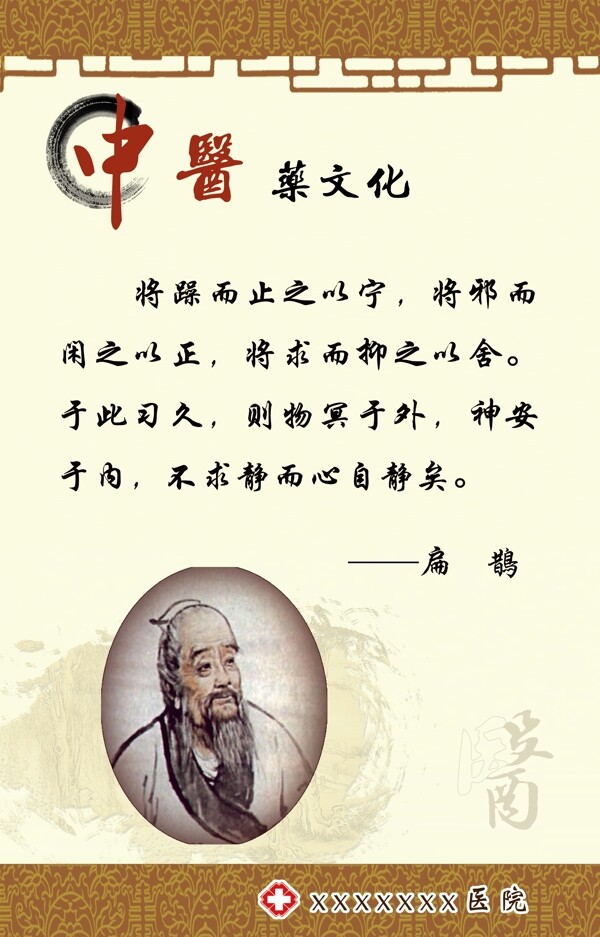 中醫 藥文化
将躁而止之以宁，将邪而
闲之以正，将求而抑之以舍。
于此习久，则物冥于外，神安
于内，不求静而心自静矣。
——扁 鹊
醫
XXXXXXX医院